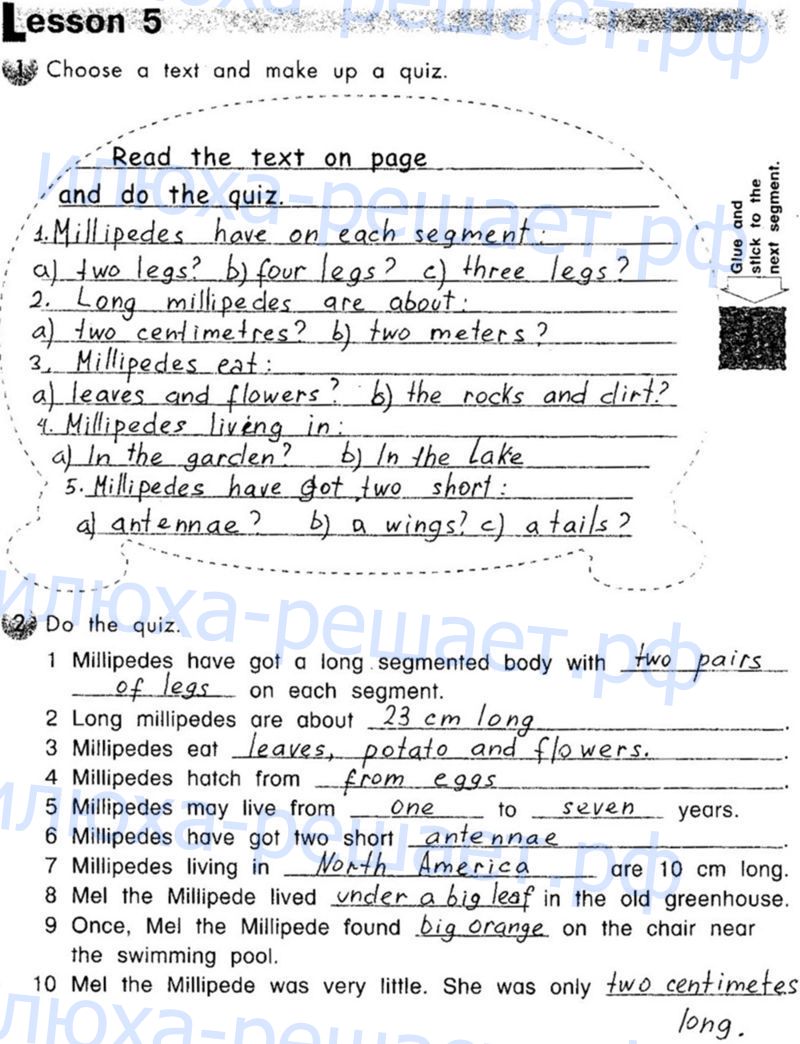 Lesson 5
1 Choose a text and make up a quiz.
Read the text on page
and do the quiz.
1. Millipedes have on each segment:
a) two legs? b) four legs? c) three legs?
2. Long millipedes are about:
a) two centimetres? b) two meters?
3. Millipedes eat:
a) leaves and flowers? b) the rocks and dirt?
4. Millipedes living in:
a) In the garden? b) In the Lake
5. Millipedes have got two short:
a) antennae? b) a wings? c) a tails?
Glue and
stick to the
next segment.
2 Do the quiz.
1 Millipedes have got a long segmented body with two pairs
of legs on each segment.
2 Long millipedes are about 23 cm long.
3 Millipedes eat leaves, potato and flowers. .
4 Millipedes hatch from from eggs.
5 Millipedes may live from one to seven years.
6 Millipedes have got two short antennae.
7 Millipedes living in North America are 10 cm long.
8 Mel the Millipede lived under a big leaf in the old greenhouse.
9 Once, Mel the Millipede found big orange on the chair near
the swimming pool.
10 Mel the Millipede was very little. She was only two centimetes
long.
илюха-решает.рф
илюха-решает.рф
илюха-решает.рф
илюха-решает.рф
илюха-решает.рф